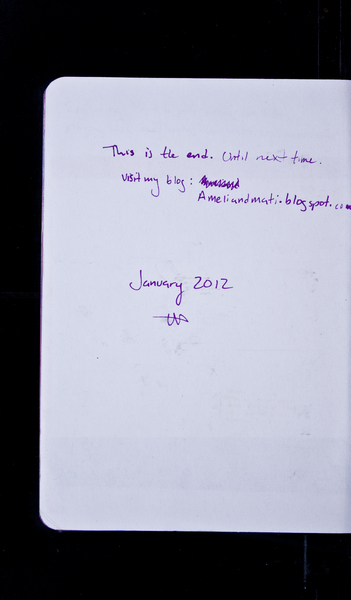 This is the end. Until next time.
Visit my blog:
Ameliandmati.blogspot.com
January 2012